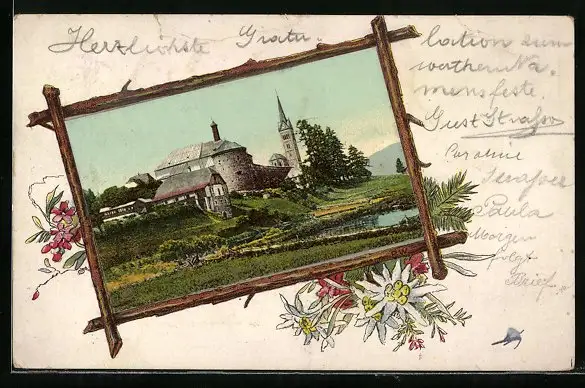 Herzlichste Gratu-
lation zum
werthen Na-
mensfeste.
Gust Strasser
Caroline
Paula
Morgen
folgt
Brief.